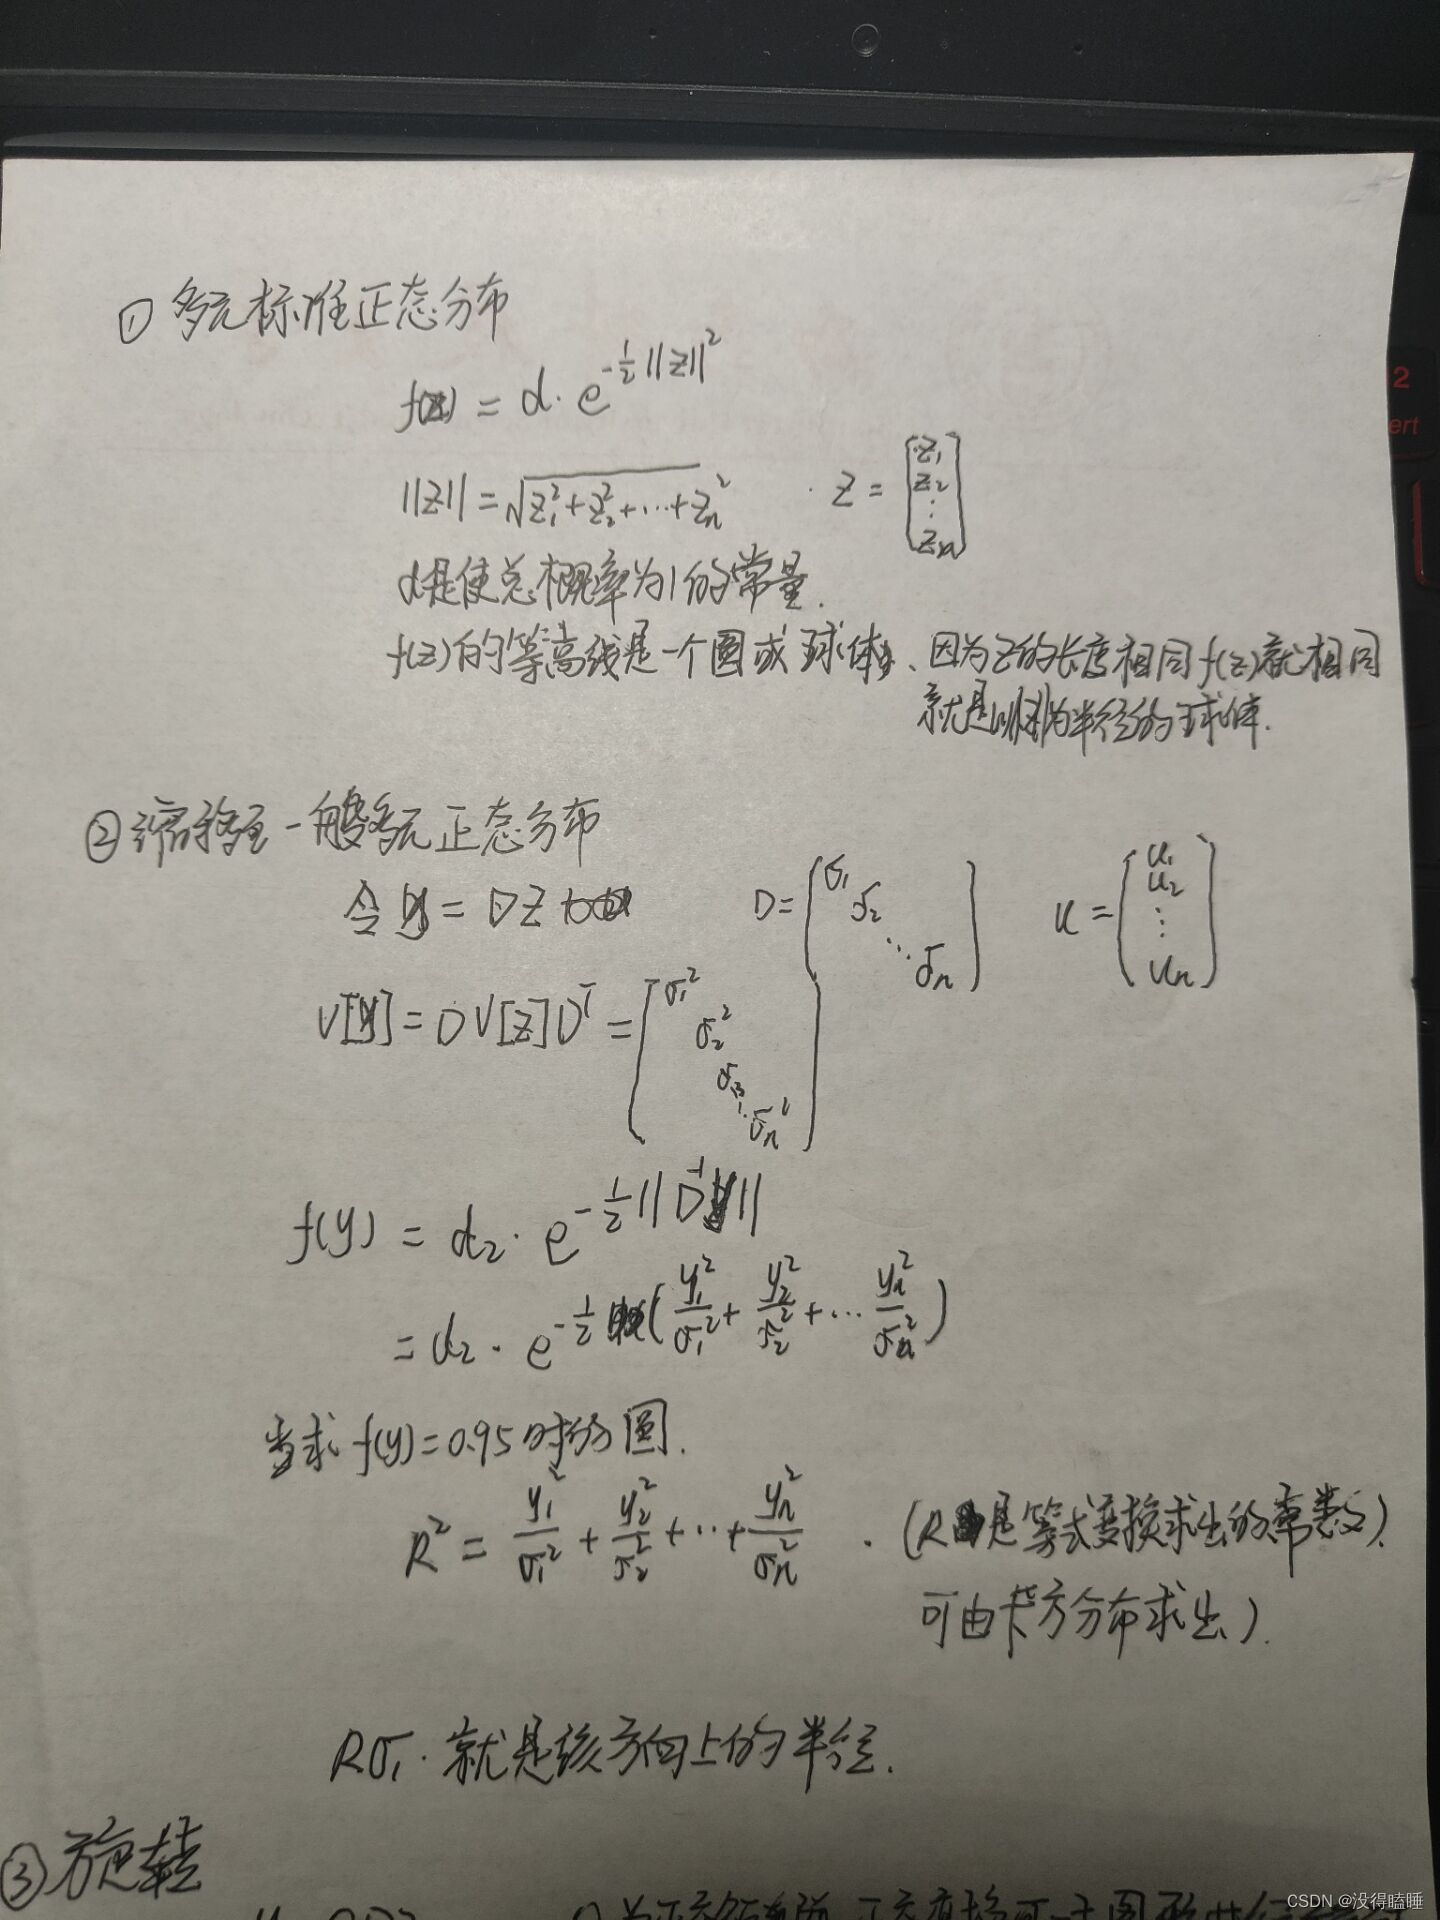 ① 多元标准正态分布
f(z) = d · e^{-1/2 ||z||^2}
||z|| = √(z₁²+z₂²+⋯+zₙ²) z = [z₁ z₂ ⋮ zₙ]
d是使总概率为1的常量.
f(z)的等高线是一个圆或球体、因为z的长度相同f(z)就相同
就是以 为半径的球体.
② 缩 至一般多元正态分布
令 y = DZ D = [σ₁ σ₂ ⋱ σₙ] u = [u₁ u₂ ⋮ uₙ]
V[y] = D V[z] Dᵀ = [σ₁² σ₂² σ₃ ⋱ σₙ²]
f(y) = d₂ · e^{-1/2 ||D⁻¹y||}
= d₂ · e^{-1/2 (y₁²/σ₁² + y₂²/σ₂² + ⋯ yₙ²/σₙ²)}
当求 f(y)=0.95时的圆.
R² = y₁²/σ₁² + y₂²/σ₂² + ⋯ + yₙ²/σₙ² . (R是等式变换求出的常数).
可由卡方分布求出).
Rσ₁. 就是该方向上的半径.
③ 旋转
CSDN @没得瞌睡